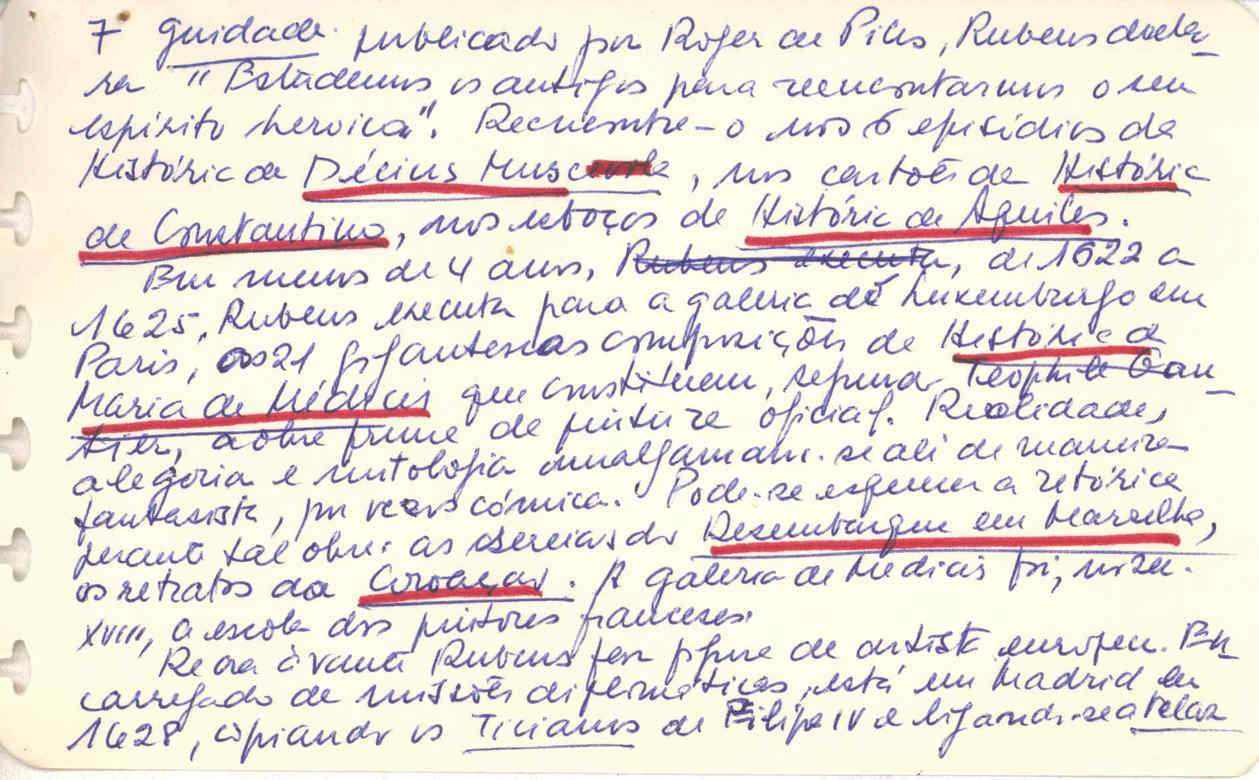 7 guidade publicado por Roger de Piles, Rubens decla-
ra "Estudemos os antigos para reencontarmos o seu
espírito heroico". Recuentre-o nos 6 episódios da
História de Décius Mus, nos cartões da História
de Constantino, nos esboços de História de Aquiles.
Em menos de 4 anos, Rubens executa, de 1622 a
1625, Rubens executa para a galeria de Luxemburgo em
Paris, as 21 gigantescas composições de História de
Maria de Médicis que constituem, segundo Teophile Gau-
tier, a obra prima de pintura oficial. Realidade,
alegoria e mitologia amalgamam-se ali de maneira
fantasista, por vezes cómica. Pode-se esquecer a retórica
perante tal obra: as sereias do Desembarque em Marselha,
os retratos da Coroação. A galeria de Medicis foi, no séc.
XVIII, a escola dos pintores franceses.
De ora àvante Rubens faz figura de artista europeu. En-
carregado de missões diplomáticas, está em Madrid em
1628, copiando os Ticianos de Filipe IV e ligando-se a Velaz